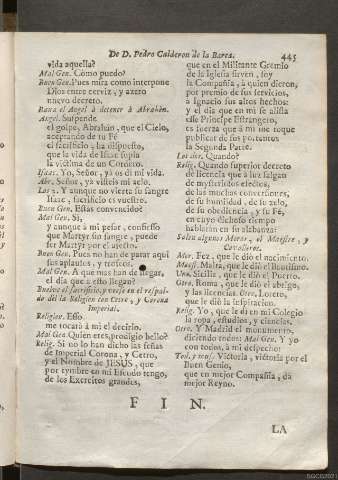 De D. Pedro Calderon de la Barca. 445
vida aquella?
Mal Gen. Còmo puedo?
Buen Gen. Pues mira como interpone
Dios entre cerviz, y azero
nuevo decreto.
Baxa el Angel à detener à Abrahàn.
Angel. Suspende
el golpe, Abrahàn, que el Cielo,
aceptando de tu Fè
el sacrificio, ha dispuesto,
que la vida de Isaac supla
la victima de un Cordero.
Isaac. Yo, Señor, yà os di mi vida.
Abr. Señor, yà visteis mi zelo.
Los 2. Y aunque no vierta su sangre
Isaac, sacrificio es vuestro.
Buen Gen. Estàs convencido?
Mal Gen. Sì,
y aunque à mi pesar, confiesso
que Martyr sin sangre, puede
ser Martyr por el afecto.
Buen Gen. Pues no han de parar aqui
sus aplausos, y trofeos.
Mal Gen. A què mas han de llegar,
el dia que à esso llegan?
Buelve al sacrificio, y vese en el respal-
do dèl la Religion con Cetro, y Corona
Imperial.
Religion. Esso
me tocarà à mi el decirlo.
Mal Gen. Quièn eres, prodigio bello?
Relig. Si no lo han dicho las señas
de Imperial Corona, y Cetro,
y el Nombre de JESUS, que
por tymbre en mi Escudo tengo,
de los Exercitos grandes,
que en el Militante Gremio
de la Iglesia sirven, soy
la Compañia, à quien dieron,
por premio de sus servicios,
à Ignacio sus altos hechos:
y el dia que en mi se alista
esse Principe Estrangero,
es fuerza que à mi me toque
publicar de sus portentos
la Segunda Parte.
Los dos. Quando?
Relig. Quando superior decreto
dè licencia que à luz salgan
de mysteriosos efectos,
de las muchas conversiones,
de su humildad, de su zelo,
de su obediencia, y su Fè,
en cuyo dichoso tiempo
hablaràn en su alabanza:
Salen algunos Moros, el Maestre, y
Cavalleros.
Mor. Fez, que le diò el nacimiento.
Maest. Malta, que le diò el Bautismo.
Uno. Sicilia, que le diò el Puerto.
Otro. Roma, que le diò el abrigo,
y las licencias. Otro. Loreto,
que le diò la inspiracion.
Relig. Yo, que le di en mi Colegio
la ropa, estudios, y ciencias.
Otro. Y Madrid el monumento,
diciendo todos: Mal Gen. Y yo
con todos, à mi despecho:
Tod. y mus. Victoria, victoria por el
Buen Genio,
que en mejor Compañia, dà
mejor Reyno.
F I N.
LA